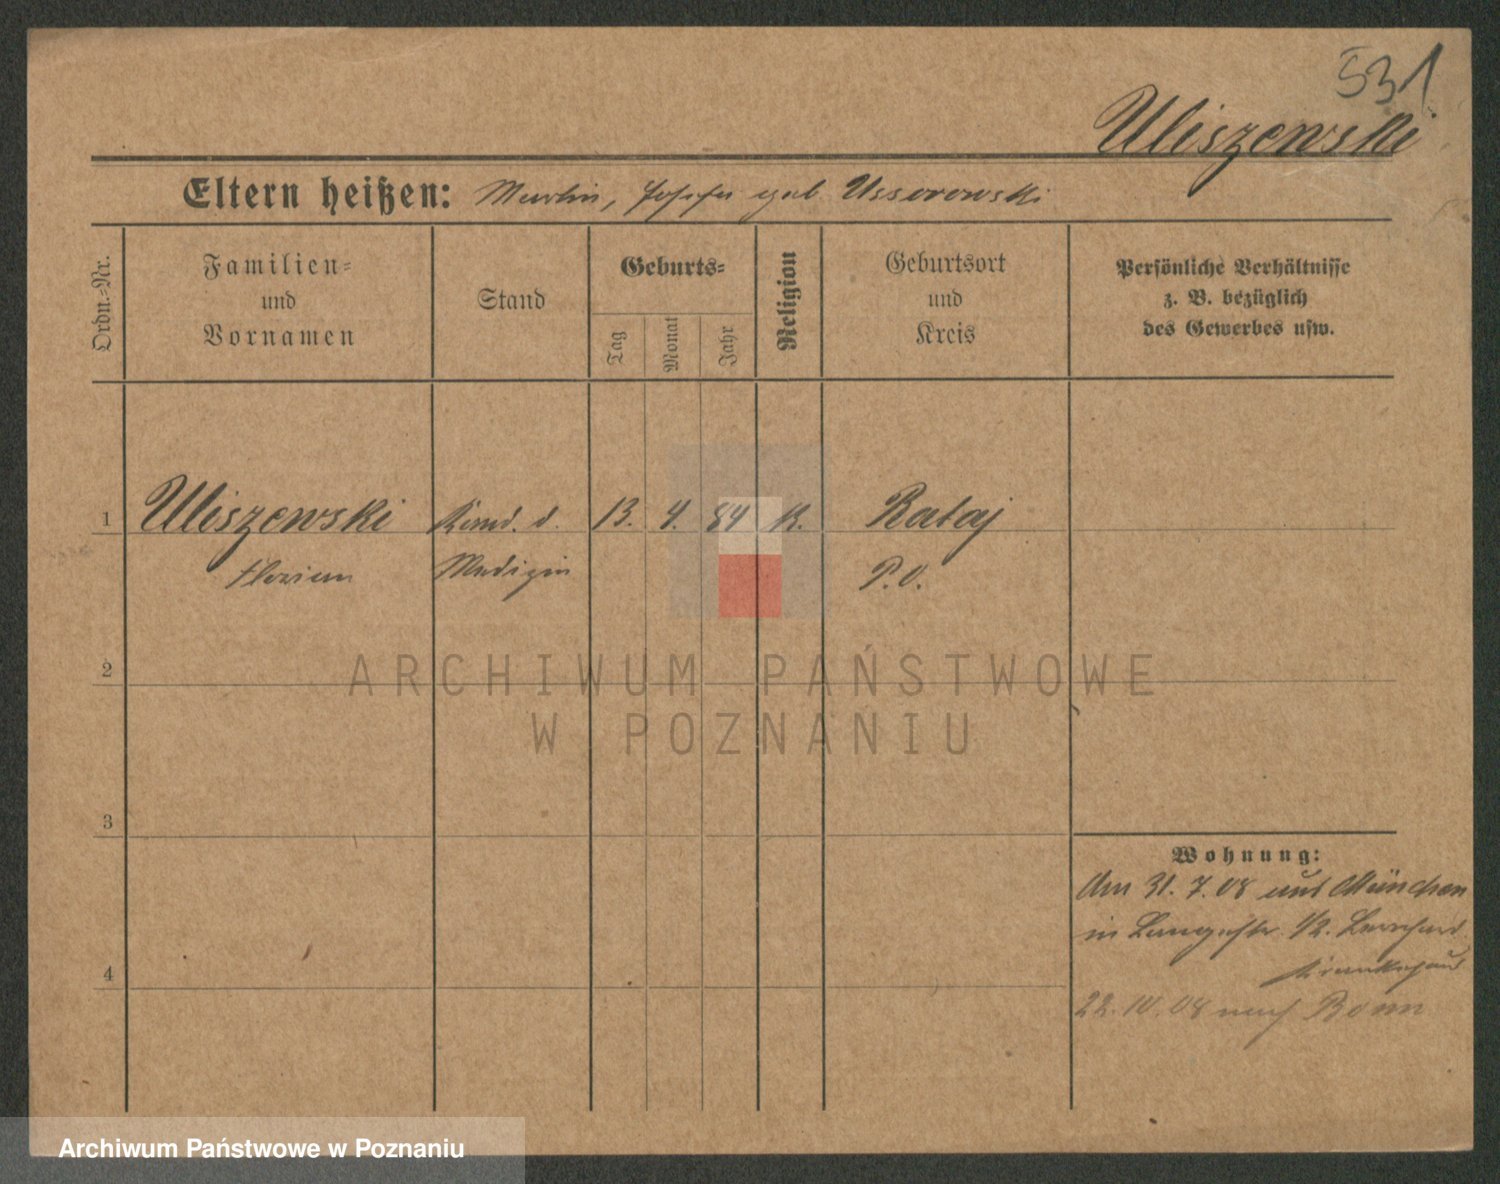 531
Uliszewski
Eltern heißen: Martin, Josefa geb Ussorowski
Ordn.-Nr.
Familien-
und
Vornamen
Stand
Geburts-
Tag
Monat
Jahr
Religion
Geburtsort
und
Kreis
Persönliche Verhältnisse
z. B. bezüglich
des Gewerbes usw.
1 Uliszewski Kand. d. 13. 4. 84 K. Rataj
Florian Medizin P.O.
ARCHIWUM PAŃSTWOWE
W POZNANIU
2
3
4
Wohnung:
Am 31.7.08 aus München
in Langestr. 1/2. Bernhard.
Krankenhaus
22.10.08 nach Bonn
Archiwum Państwowe w Poznaniu